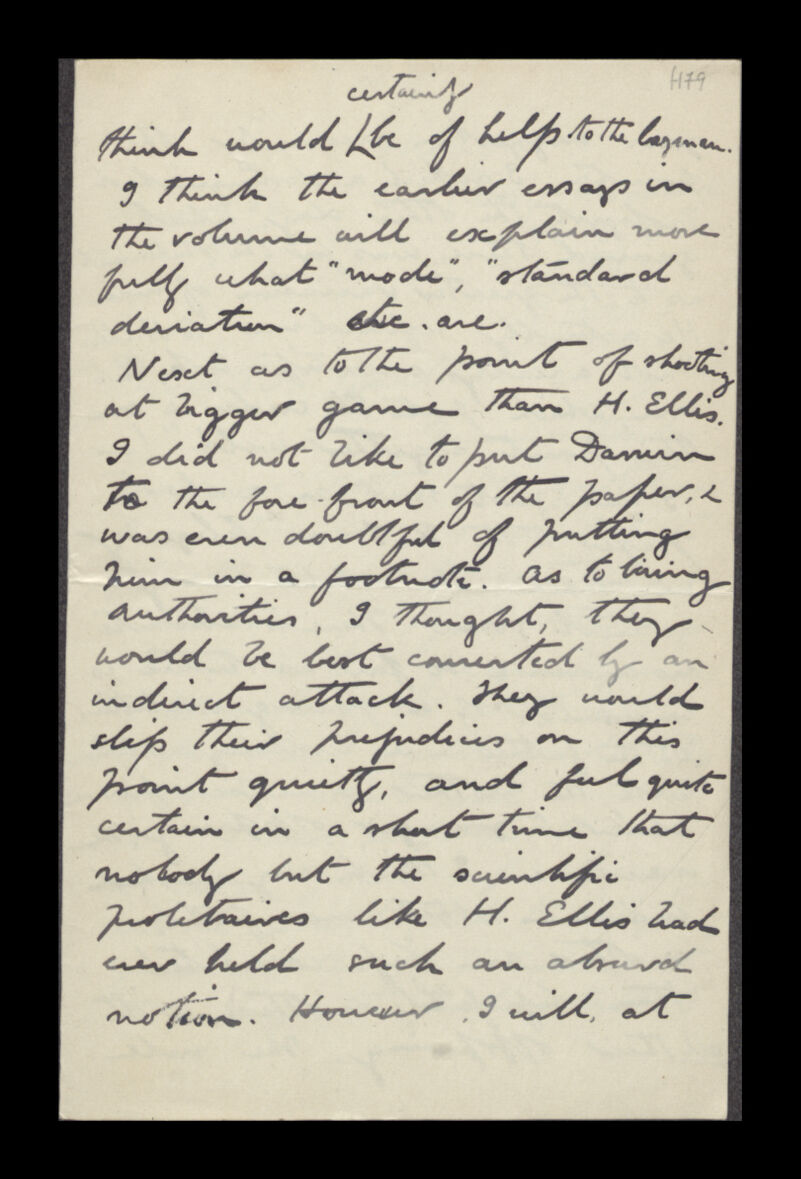 H79
certainly
think would be of help to the layman.
I think the earlier essays in
the volume will explain more
fully what "mode", "standard
deviation" etc. are.
Next as to the point of shooting
at bigger game than H. Ellis.
I did not like to put Darwin
to the fore-front of the paper, &
was even doubtful of putting
him in a footnote. As to living
authorities, I thought, they
would be best converted by an
indirect attack. They would
slip their prejudices on this
point quietly, and feel quite
certain in a short time that
nobody but the scientific
proletaires like H. Ellis had
ever held such an absurd
notion. However, I will, at